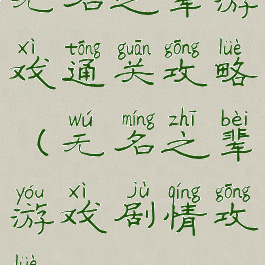 无名之辈游
xì tōng guān gōng lüè
戏通关攻略
wú míng zhī bèi
(无名之辈
yóu xì jù qíng gōng
游戏剧情攻
lüè